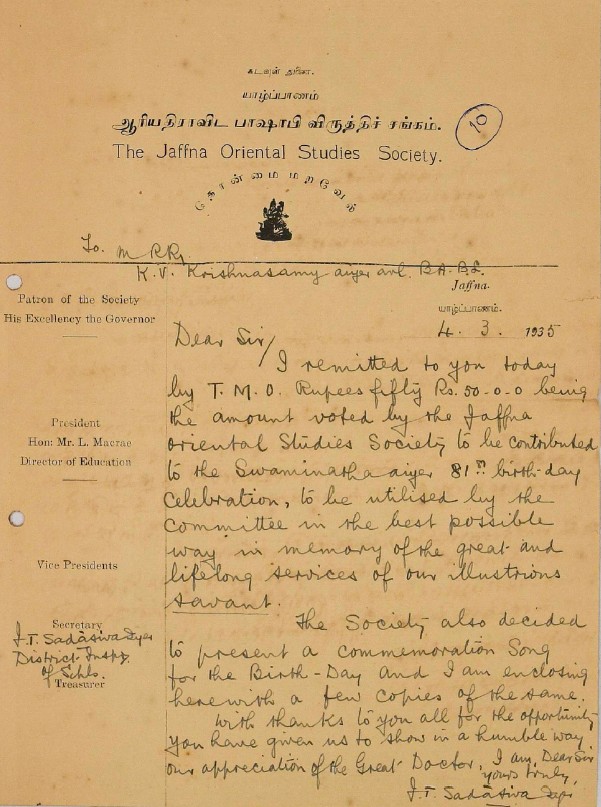 கடவுள் துணை.
யாழ்ப்பாணம்
ஆரியதிராவிட பாஷாபி விருத்திச் சங்கம்.
10
The Jaffna Oriental Studies Society.
தொன்மை மறவேல்
To. M R Ry
K. V. Krishnasamy aiyer avl. B.A. B.L.
Jaffna.
யாழ்ப்பாணம்.
4. 3. 1935
Patron of the Society
His Excellency the Governor
President
Hon: Mr. L. Macrae
Director of Education
Vice Presidents
Secretary
J. T. Sadāsiva Iyer
District Inspr.
of Schls.
Treasurer
Dear Sir/
I remitted to you today
by T. M. O. Rupees fifty Rs. 50-0-0 being
the amount voted by the Jaffna
oriental Studies Society to be contributed
to the Swaminatha aiyer 81st birth-day
Celebration, to be utilised by the
Committee in the best possible
way in memory of the great and
lifelong services of our illustrious
savant.
The Society also decided
to present a commemoration Song
for the Birth-Day and I am enclosing
herewith a few copies of the same.
With thanks to you all for the opportunity
you have given us to show in a humble way
our appreciation of the Great Doctor, I am, Dear Sir
yours truly,
J. T. Sadāsiva Iyer